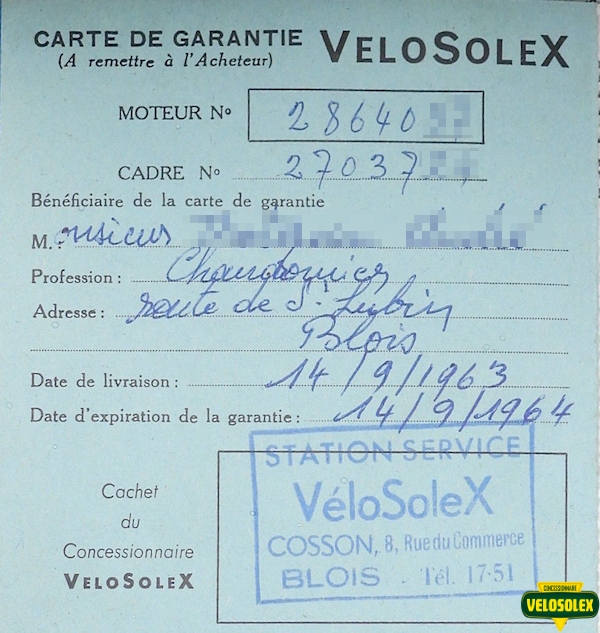 CARTE DE GARANTIE VELOSOLEX
(A remettre à l'Acheteur)
MOTEUR No 28640
CADRE No 27037
Bénéficiaire de la carte de garantie
M.: onsieur
Profession: Chaudronnier
Adresse: route de St Lubin
Blois
Date de livraison: 14/9/1963
Date d'expiration de la garantie: 14/9/1964
STATION SERVICE
VéloSoleX
COSSON, 8, Rue du Commerce
BLOIS - Tél. 17-51
Cachet
du
Concessionnaire
VELOSOLEX
CONCESSIONNAIRE
VELOSOLEX